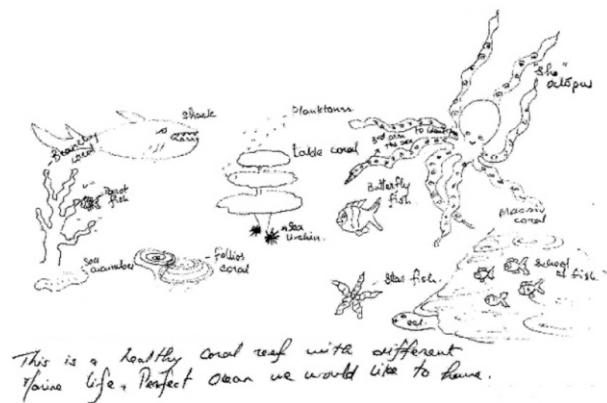 Shark
Planktons
"She"
octopus
Branching
coral
table coral
3rd arm
the sex
Parrot
fish
Butterfly
fish.
Sea
Urchin.
Massiv
coral
Sea
cucumber
Follios
coral
Star fish.
School
of fish
eel
This is a healthy coral reef with different
Marine life. Perfect ocean we would like to have.